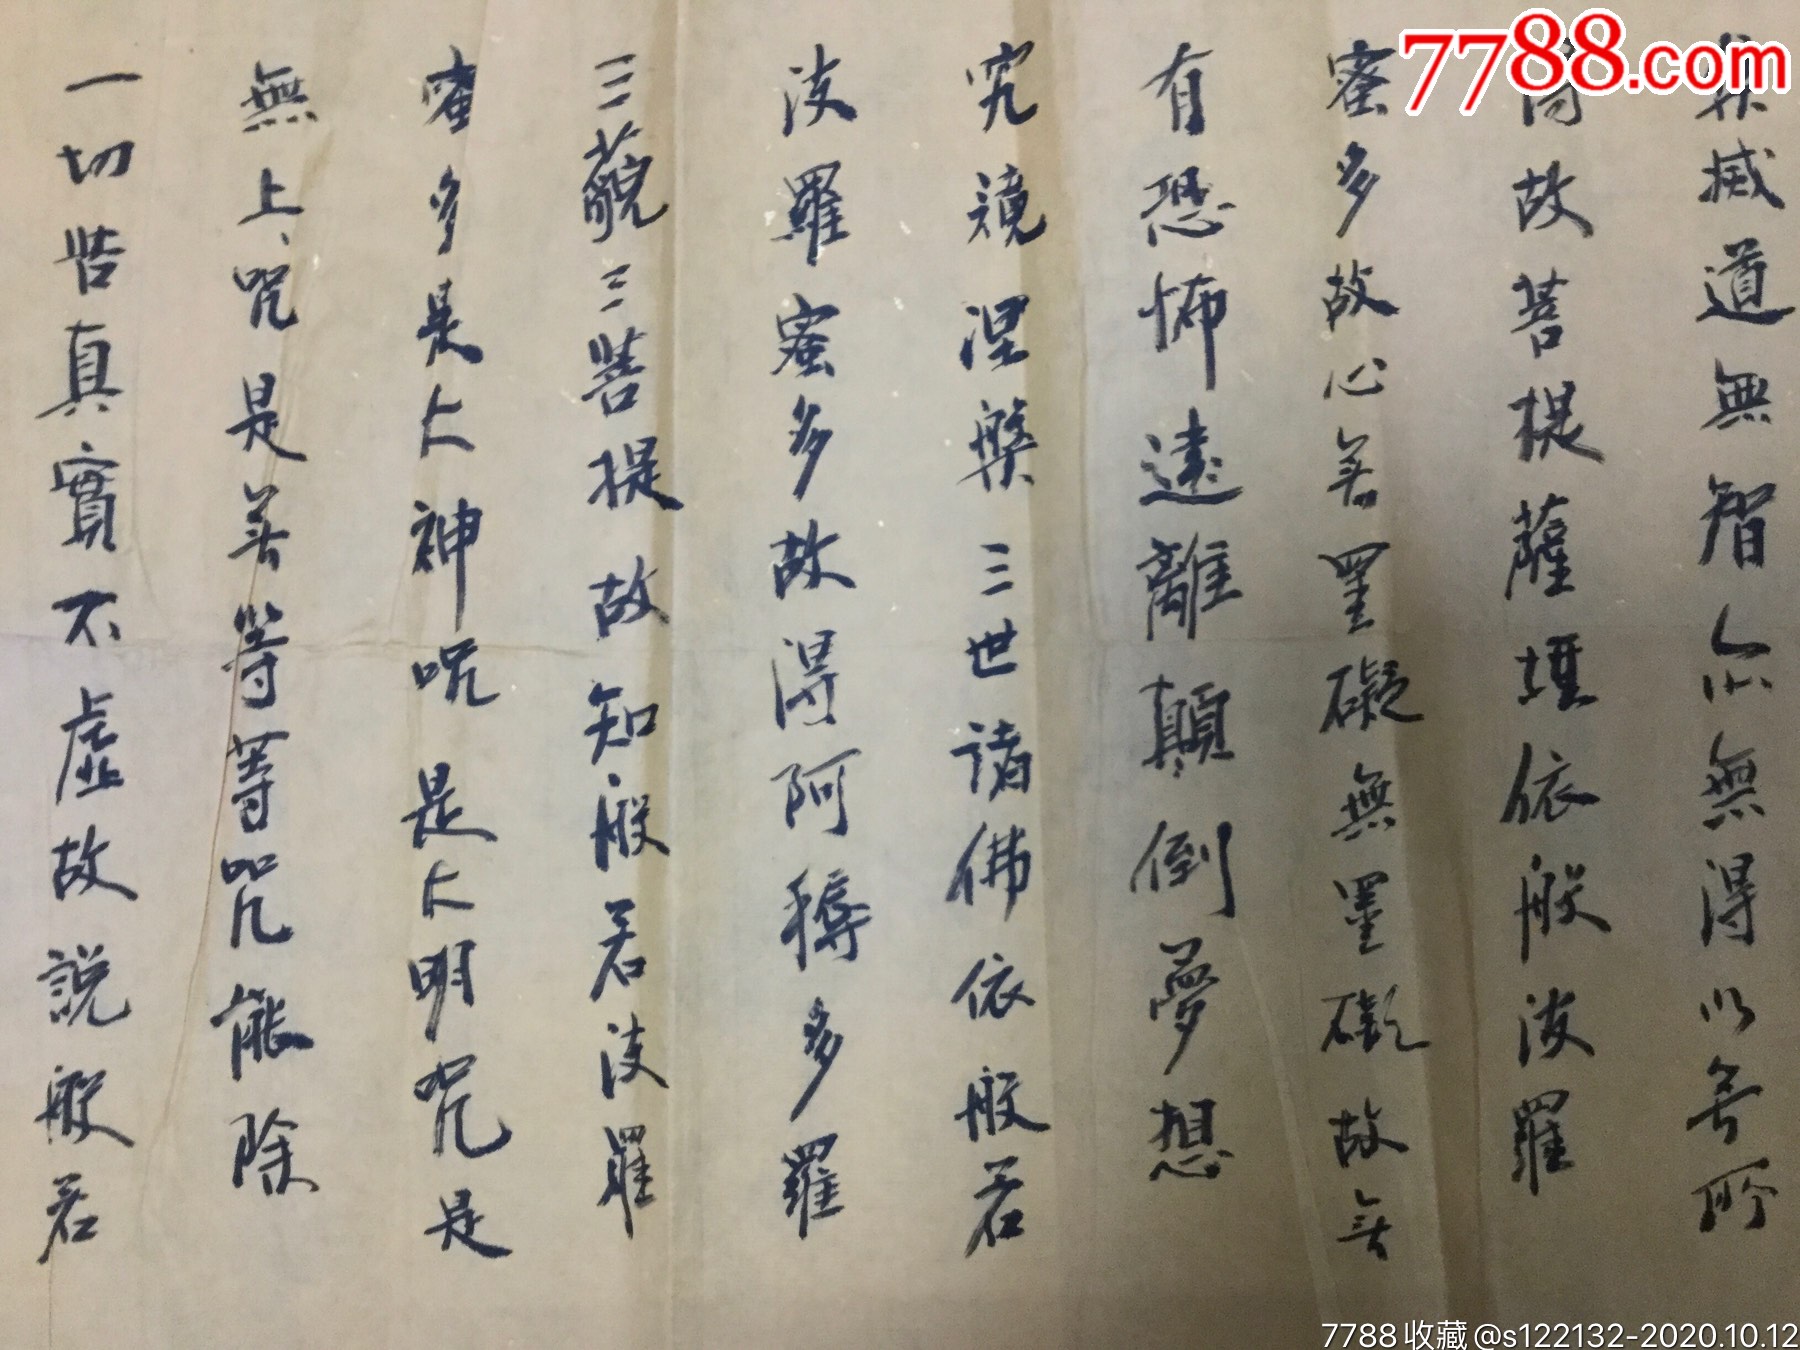 集滅道無智亦無得以無所
得故菩提薩埵依般波羅
蜜多故心無罣礙無罣礙故無
有恐怖遠離顛倒夢想
究竟涅槃三世諸佛依般若
波羅蜜多故得阿耨多羅
三藐三菩提故知般若波羅
蜜多是大神咒是大明咒是
無上咒是無等等咒能除
一切皆真實不虛故說般若
7788.com
7788收藏@s122132-2020.10.12